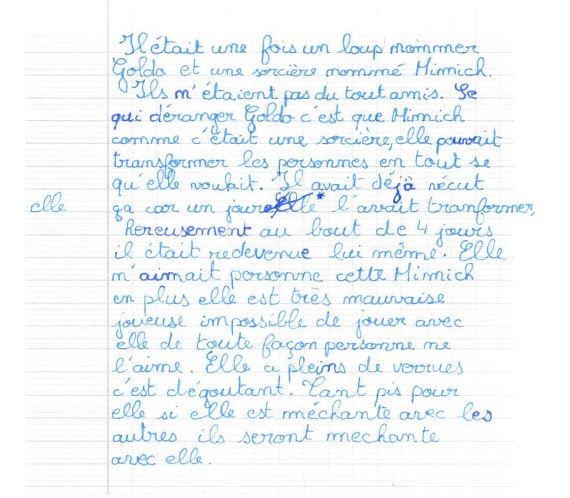 Il était une fois un loup nommer
Goldo et une sorcière nommé Mimich.
Ils n'étaient pas du tout amis. Se
qui déranger Goldo c'est que Mimich
comme c'était une sorcière, elle pouvait
transformer les personnes en tout se
qu'elle voulait. Il avait déjà vécut
elle ça car un jour * l'avait tranformer,
hereusement au bout de 4 jours
il était redevenue lui même. Elle
n'aimait personne cette Mimich
en plus elle est très mauvaise
joueuse impossible de jouer avec
elle de toute façon personne ne
l'aime. Elle a pleins de verrues
c'est dégoutant. Tant pis pour
elle si elle est méchante avec les
autres ils seront mechante
avec elle.